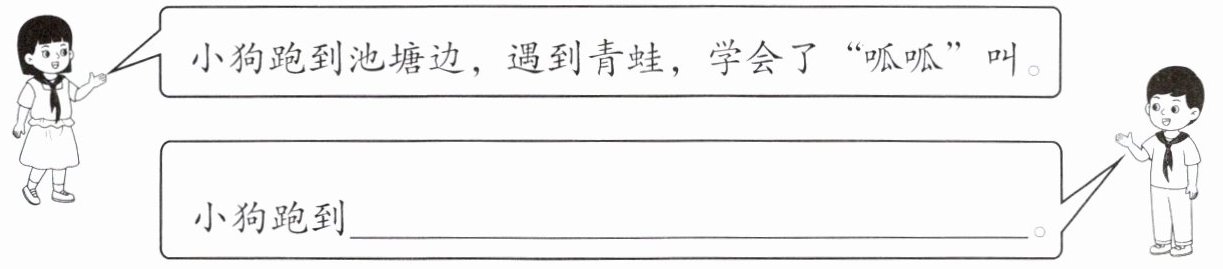 小狗跑到池塘边，遇到青蛙，学会了“呱呱”叫。
小狗跑到____________________。